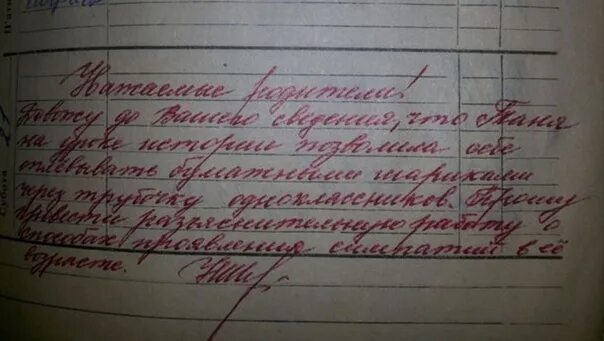 Уважаемые родители!
Довожу до Вашего сведения, что Таня
на уроке истории позволила себе
оплёвывать бумажными шариками
через трубочку одноклассников. Прошу
провести разъяснительную работу о
способах проявления симпатий в её
возрасте.
Суббота